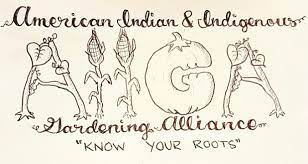 American Indian & Indigenous
AIIGA
Gardening Alliance
"KNOW YOUR ROOTS"